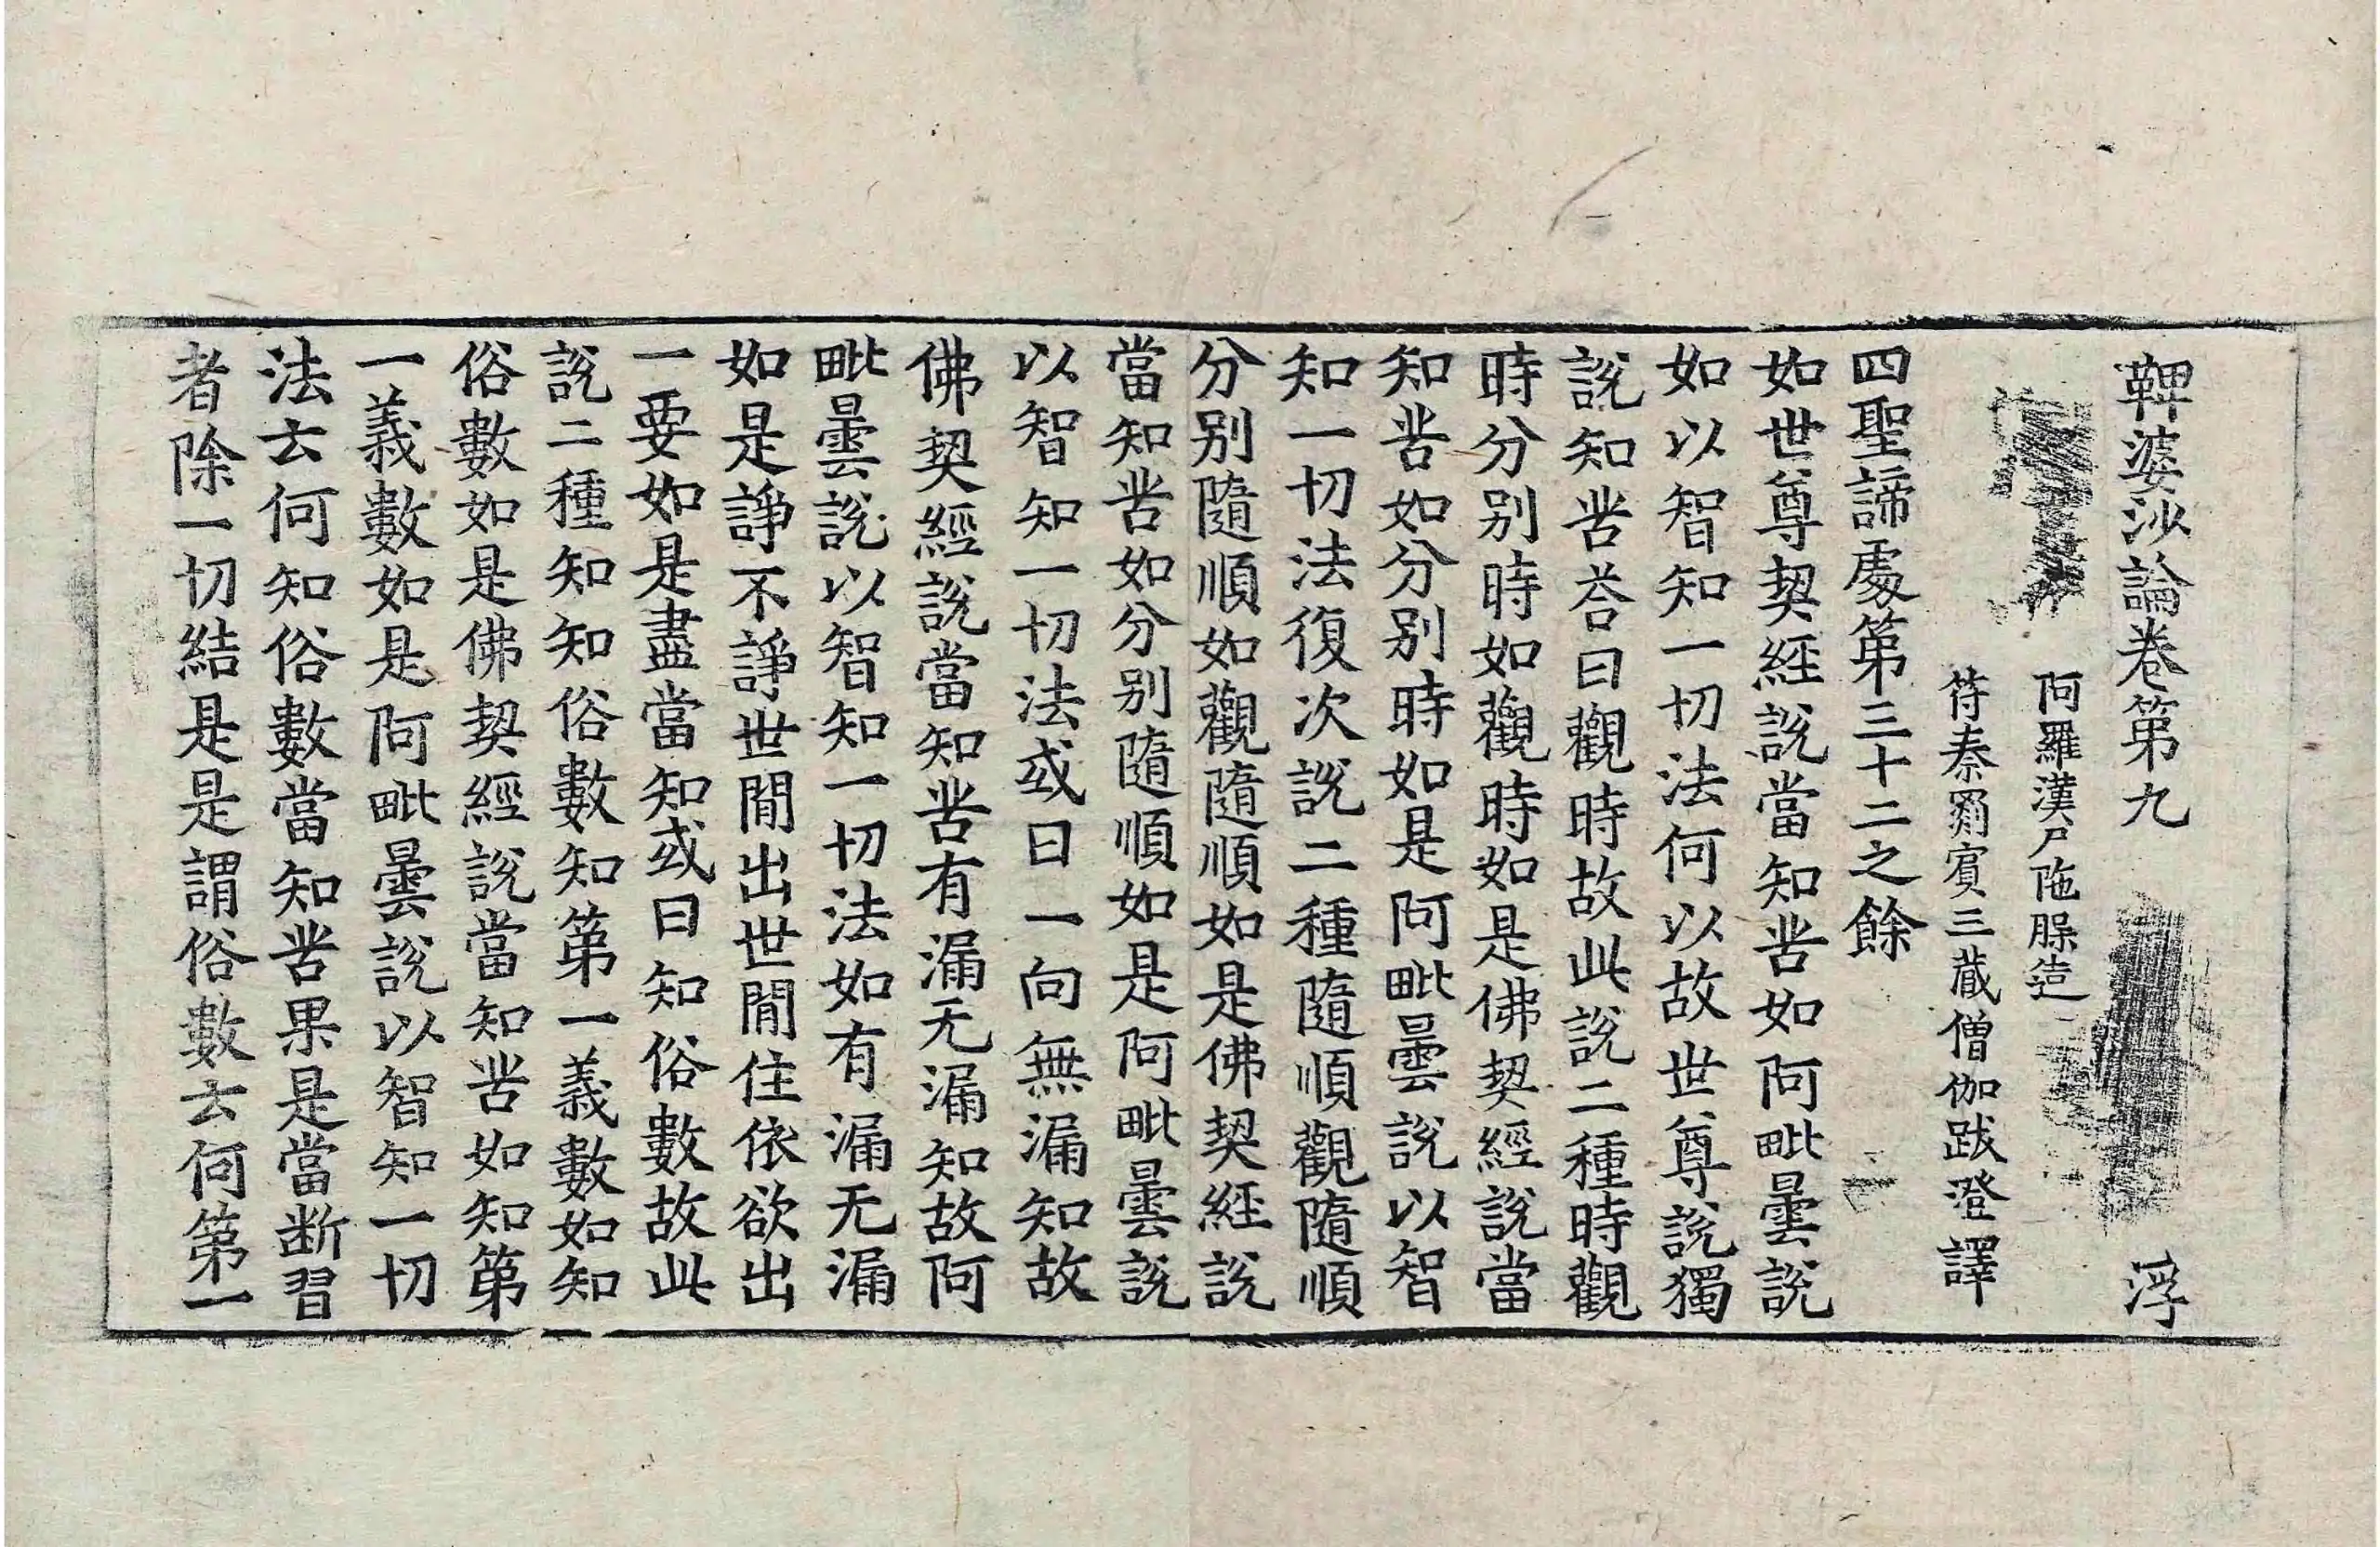 鞞婆沙論卷第九 浮
阿羅漢尸陁槃造
符秦罽賓三藏僧伽跋澄譯
四聖諦處第三十二之餘
如世尊契經說當知苦如阿毗曇說
如以智知一切法何以故世尊說獨
說知苦荅曰觀時故此說二種時觀
時分别時如觀時如是佛契經說當
知苦如分别時如是阿毗曇說以智
知一切法復次說二種隨順觀隨順
分别隨順如觀隨順如是佛契經說
當知苦如分别隨順如是阿毗曇說
以智知一切法或曰一向無漏知故
佛契經說當知苦有漏无漏知故阿
毗曇說以智知一切法如有漏无漏
如是諍不諍世間出世間住依欲出
一要如是盡當知或曰知俗數故此
說二種知知俗數知第一義數如知
俗數如是佛契經說當知苦如知第
一義數如是阿毗曇說以智知一切
法云何知俗數當知苦果是當断習
者除一切結是是謂俗數云何第一